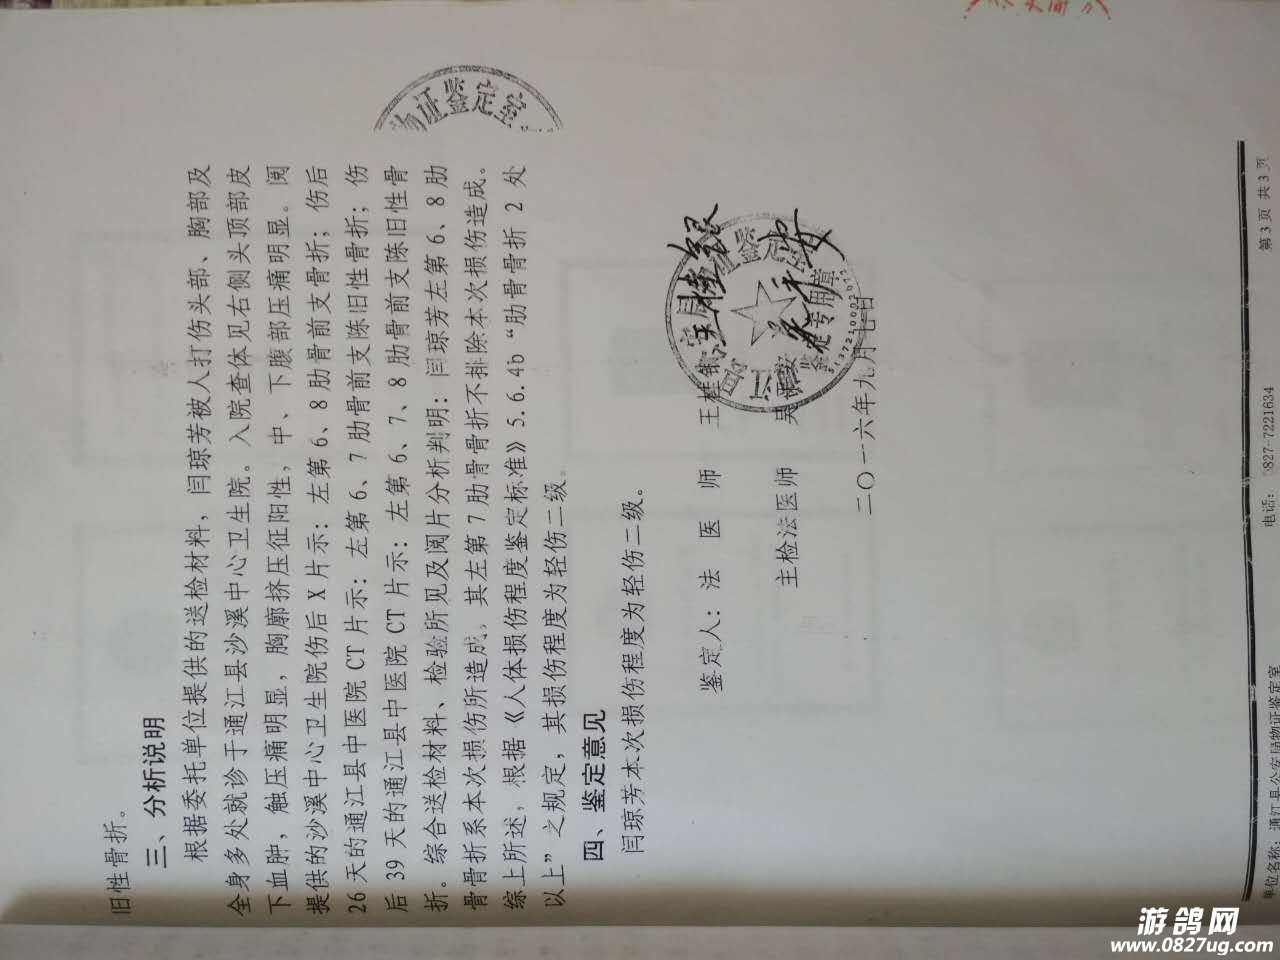 旧性骨折。
三、分析说明
根据委托单位提供的送检材料，闫琼芳被人打伤头部、胸部及
全身多处就诊于通江县沙溪中心卫生院。入院查体见右侧头顶部皮
下血肿，触压痛明显，胸廓挤压征阳性，中、下腹部压痛明显。阅
提供的沙溪中心卫生院伤后X片示：左第6、8肋骨前支骨折；伤后
26天的通江县中医院CT片示：左第6、7肋骨前支陈旧性骨折；伤
后39天的通江县中医院CT片示：左第6、7、8肋骨前支陈旧性骨
折。综合送检材料、检验所见及阅片分析判明：闫琼芳左第6、8肋
骨骨折系本次损伤所造成，其左第7肋骨骨折不排除本次损伤造成。
综上所述，根据《人体损伤程度鉴定标准》5.6.4b“肋骨骨折2处
以上”之规定，其损伤程度为轻伤二级。
四、鉴定意见
闫琼芳本次损伤程度为轻伤二级。
鉴定人：法 医 师 王桂银
主检法医师 吴
二〇一六年九月七日
物证鉴定室
鉴定专用章
单位名称：通江县公安局物证鉴定室 电话：0827-7221634 第3页 共3页
游鸽网
www.0827ug.com